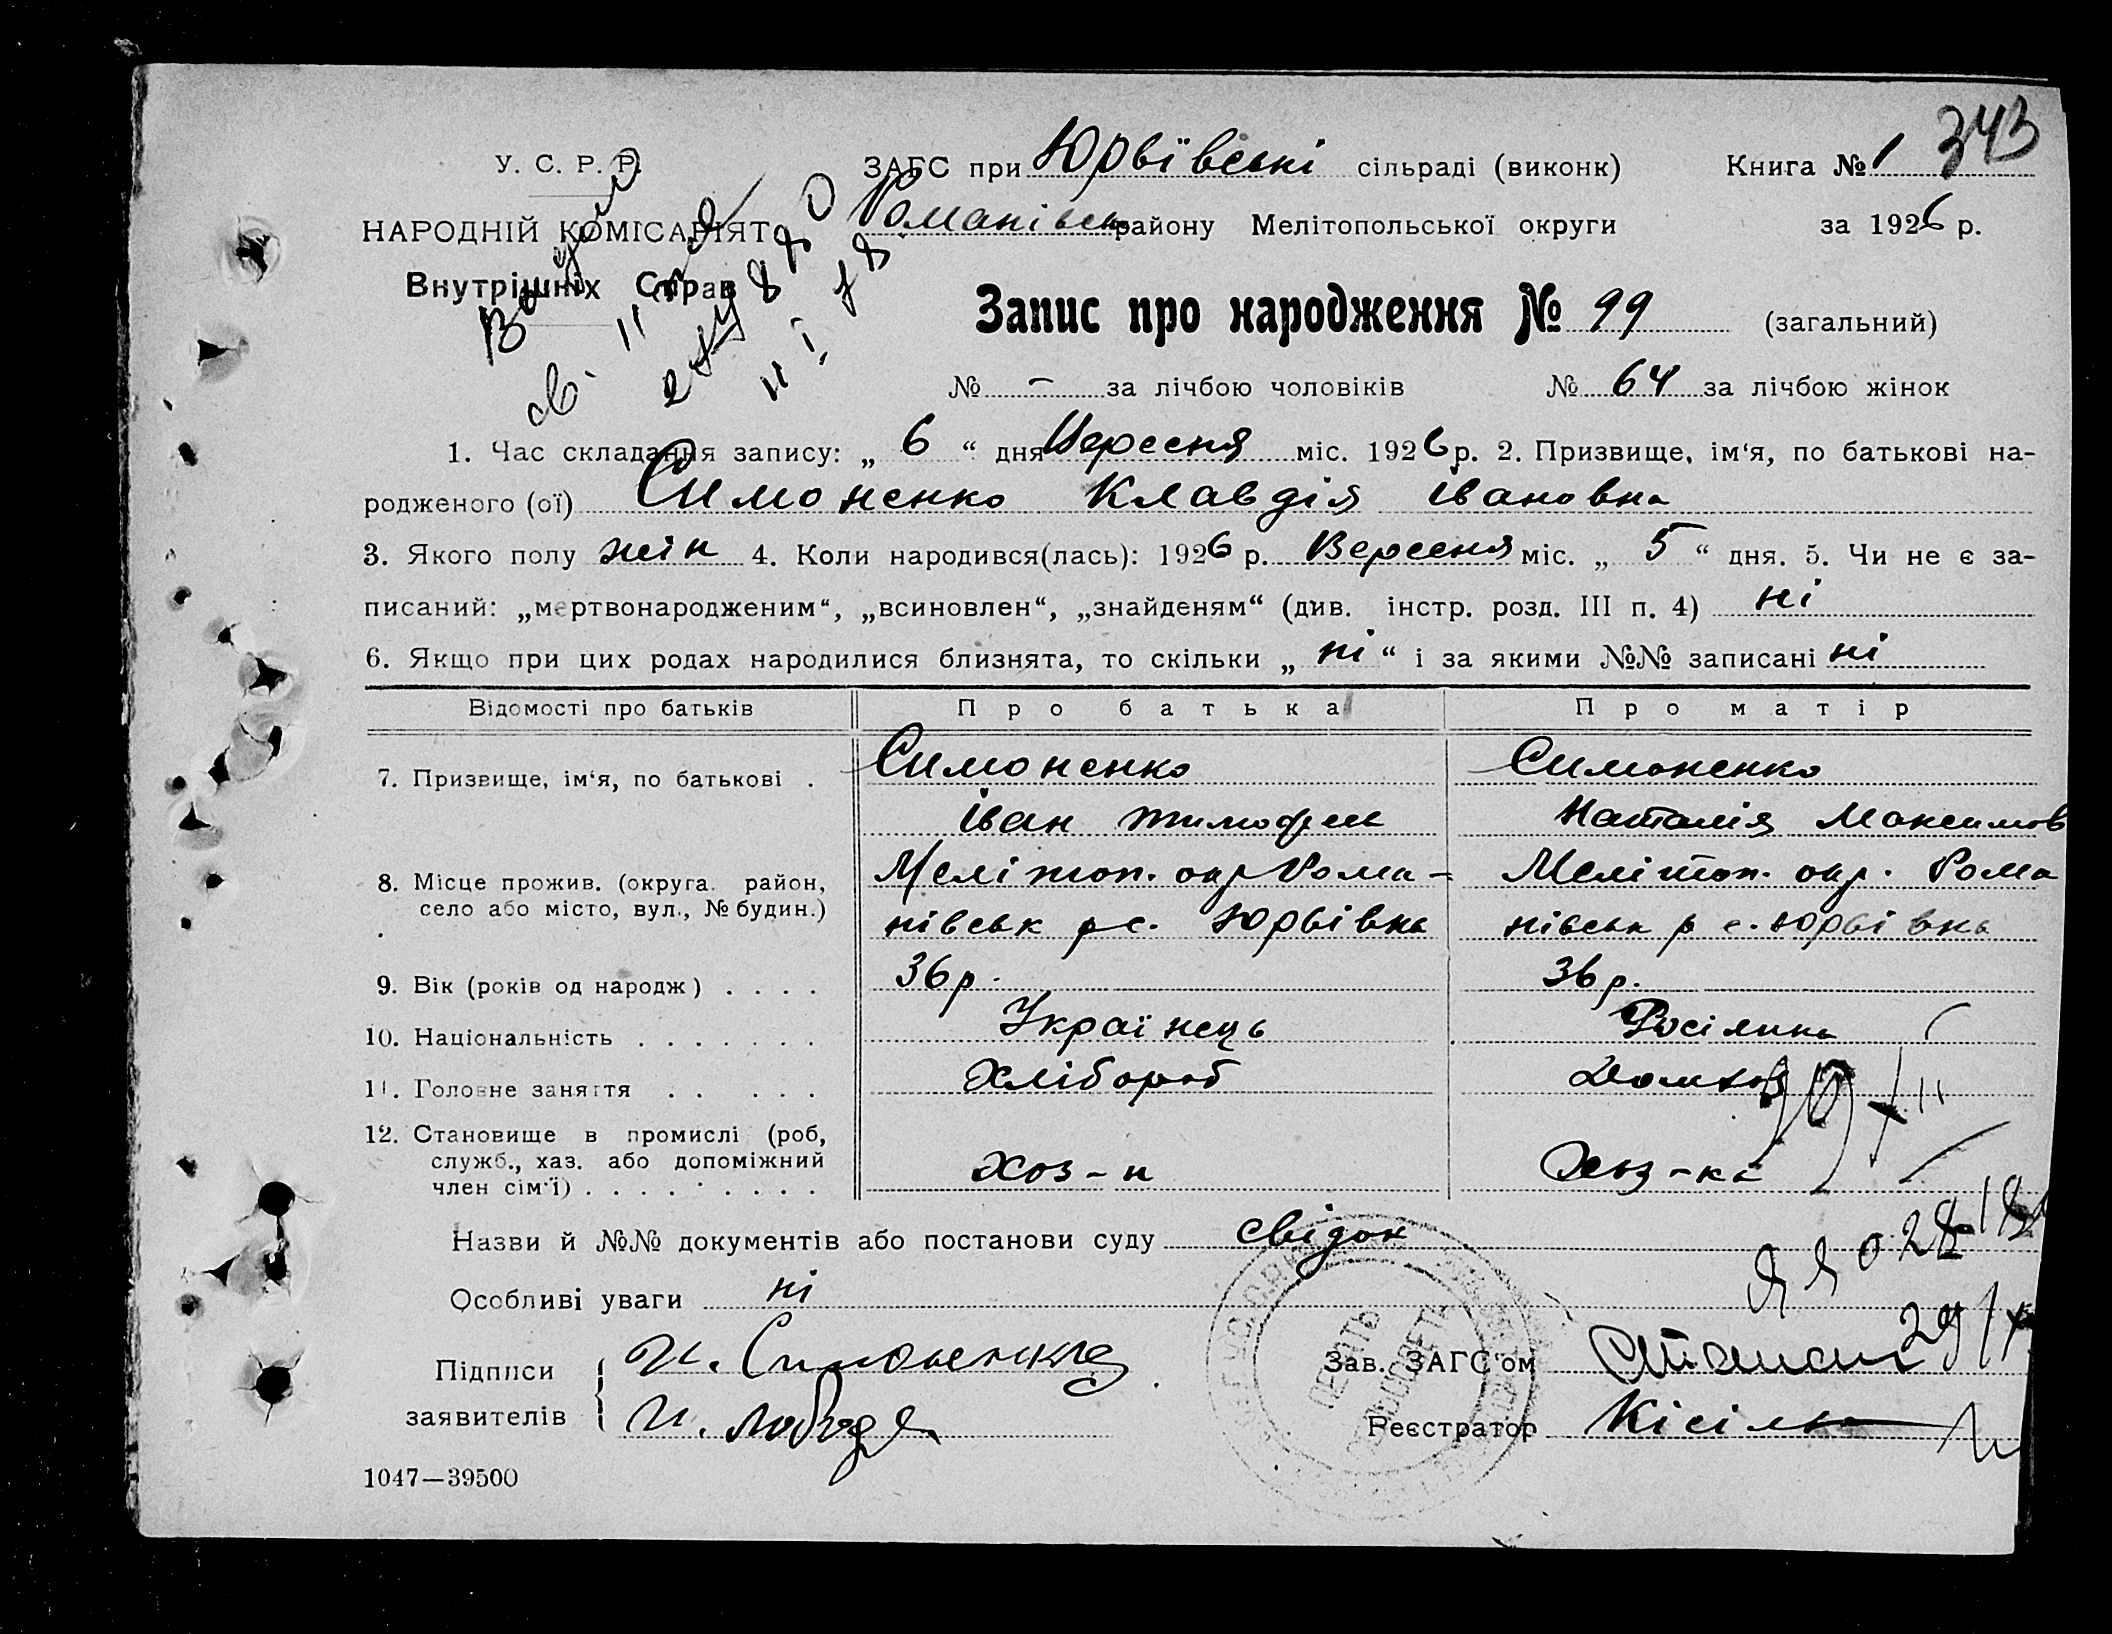 343
У. С. Р. Р. ЗАГС при Юрьївські сільраді (виконк) Книга № 1
НАРОДНІЙ КОМІСАРІЯТ Романівськ району Мелітопольської округи за 1926 р.
Внутрішніх Справ
Запис про народження № 99 (загальний)
№ – за лічбою чоловіків № 64 за лічбою жінок
1. Час складання запису: „ 6 “ дня Вересня міс. 1926 р. 2. Призвище, ім‘я, по батькові на-
родженого (ої) Симоненко Клавдія Івановна
3. Якого полу жін 4. Коли народився(лась): 1926 р. Вересня міс. „ 5 “ дня. 5. Чи не є за-
писаний: „мертвонародженим“, „всиновлен“, „знайденям“ (див. інстр. розд. III п. 4) ні
6. Якщо при цих родах народилися близнята, то скільки „ ні “ і за якими №№ записані ні
Відомості про батьків Про батька Про матір
7. Призвище, ім‘я, по батькові . Симоненко Симоненко
Іван Тимофеев Наталія Максимов
8. Місце прожив. (округа. район, Мелітоп. окр Рома- Мелітоп. окр. Рома
село або місто, вул., № будин.) нівськ р с. Юрьівка нівськ р с. Юрьівка
9. Вік (років од народж) . . . . 36 р. 36 р.
10. Національність . . . . . . . Українець Росіянка
11. Головне заняття . . . . . Хлібороб Домхоз
12. Становище в промислі (роб,
служб., хаз. або допоміжний Хоз-н Хоз-ка
член сім‘ї) . . . . . . . . .
Назви й №№ документів або постанови суду свідок
Особливі уваги ні
Підписи И. Симоненко Зав. ЗАГС‘ом
заявителів И. Лобода Реєстратор Кісіль
ПЕЧАТЬ
1047—39500